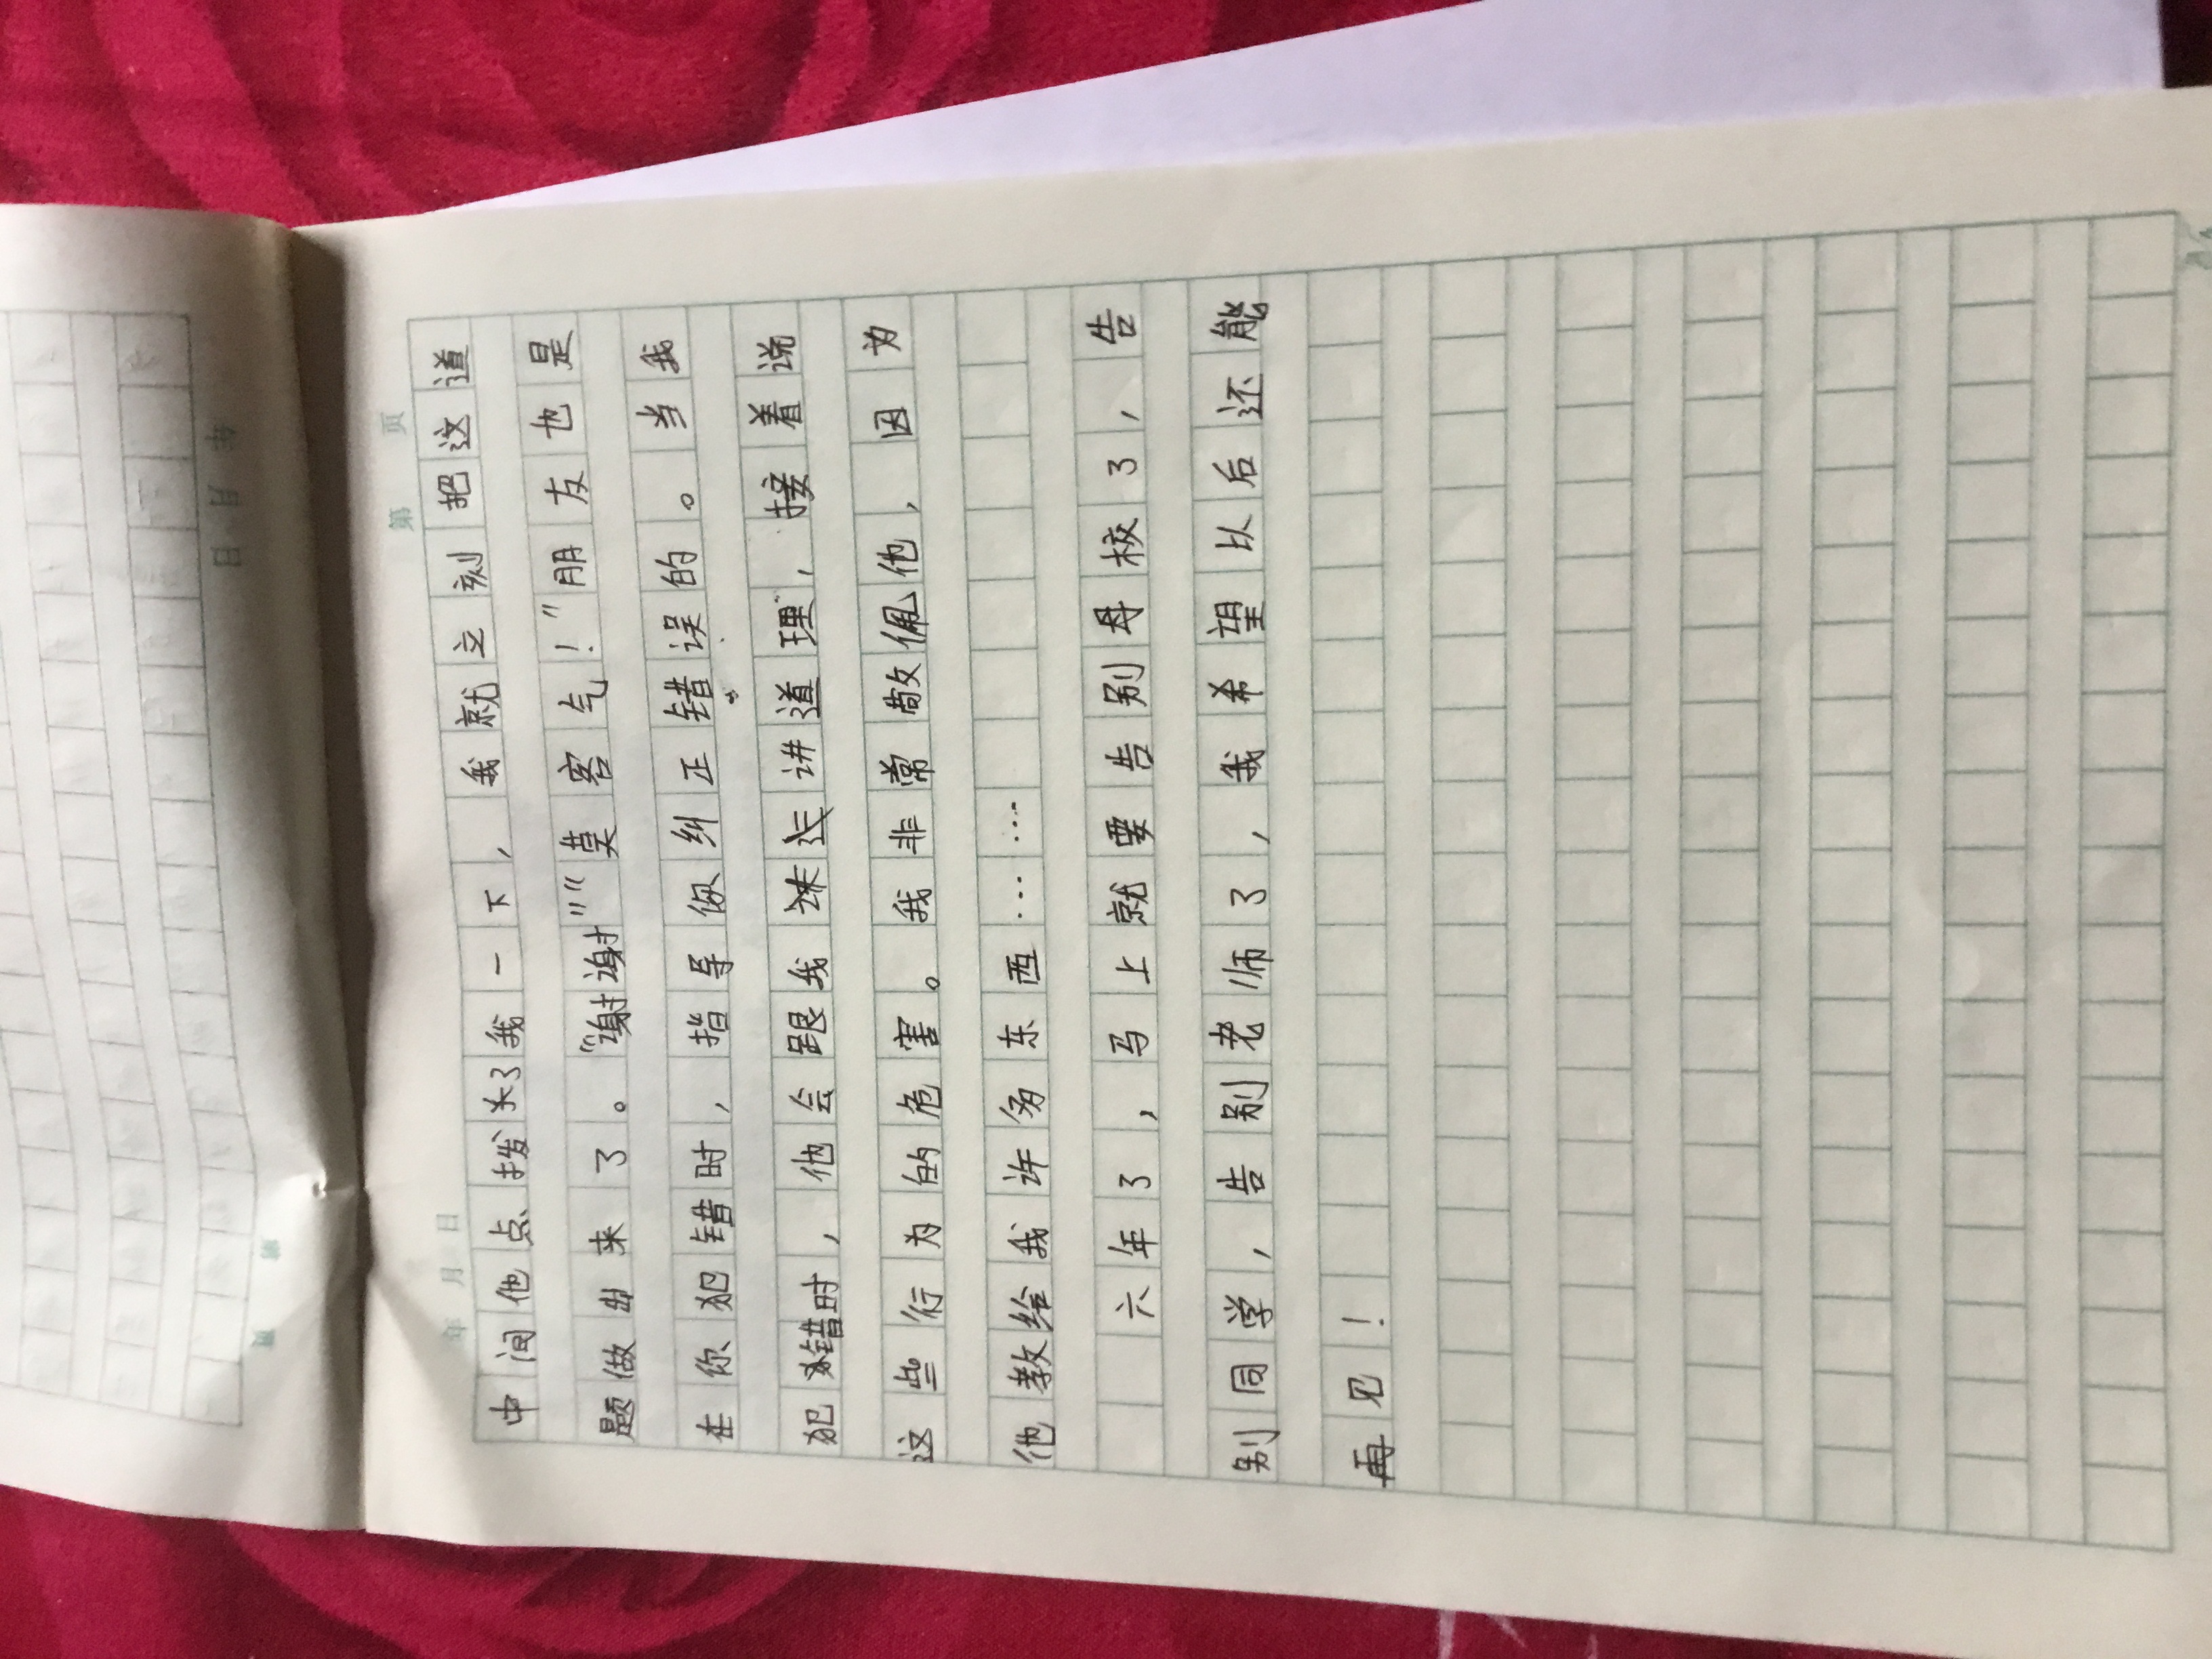 第 页
年 月 日
中间他点拨关了我一下，我就立刻把这道
题做出来了。“谢谢”“莫客气！”朋友也是
在你犯错时，指导你纠正错误的。当我
犯错时，他会跟我讲道理，接着说
这些行为的危害。我非常敬佩他，因为
他教给我许多东西……
六年了，马上就要告别母校了，告
别同学，告别老师了，我希望以后还能
再见！
年 月 日
第 页